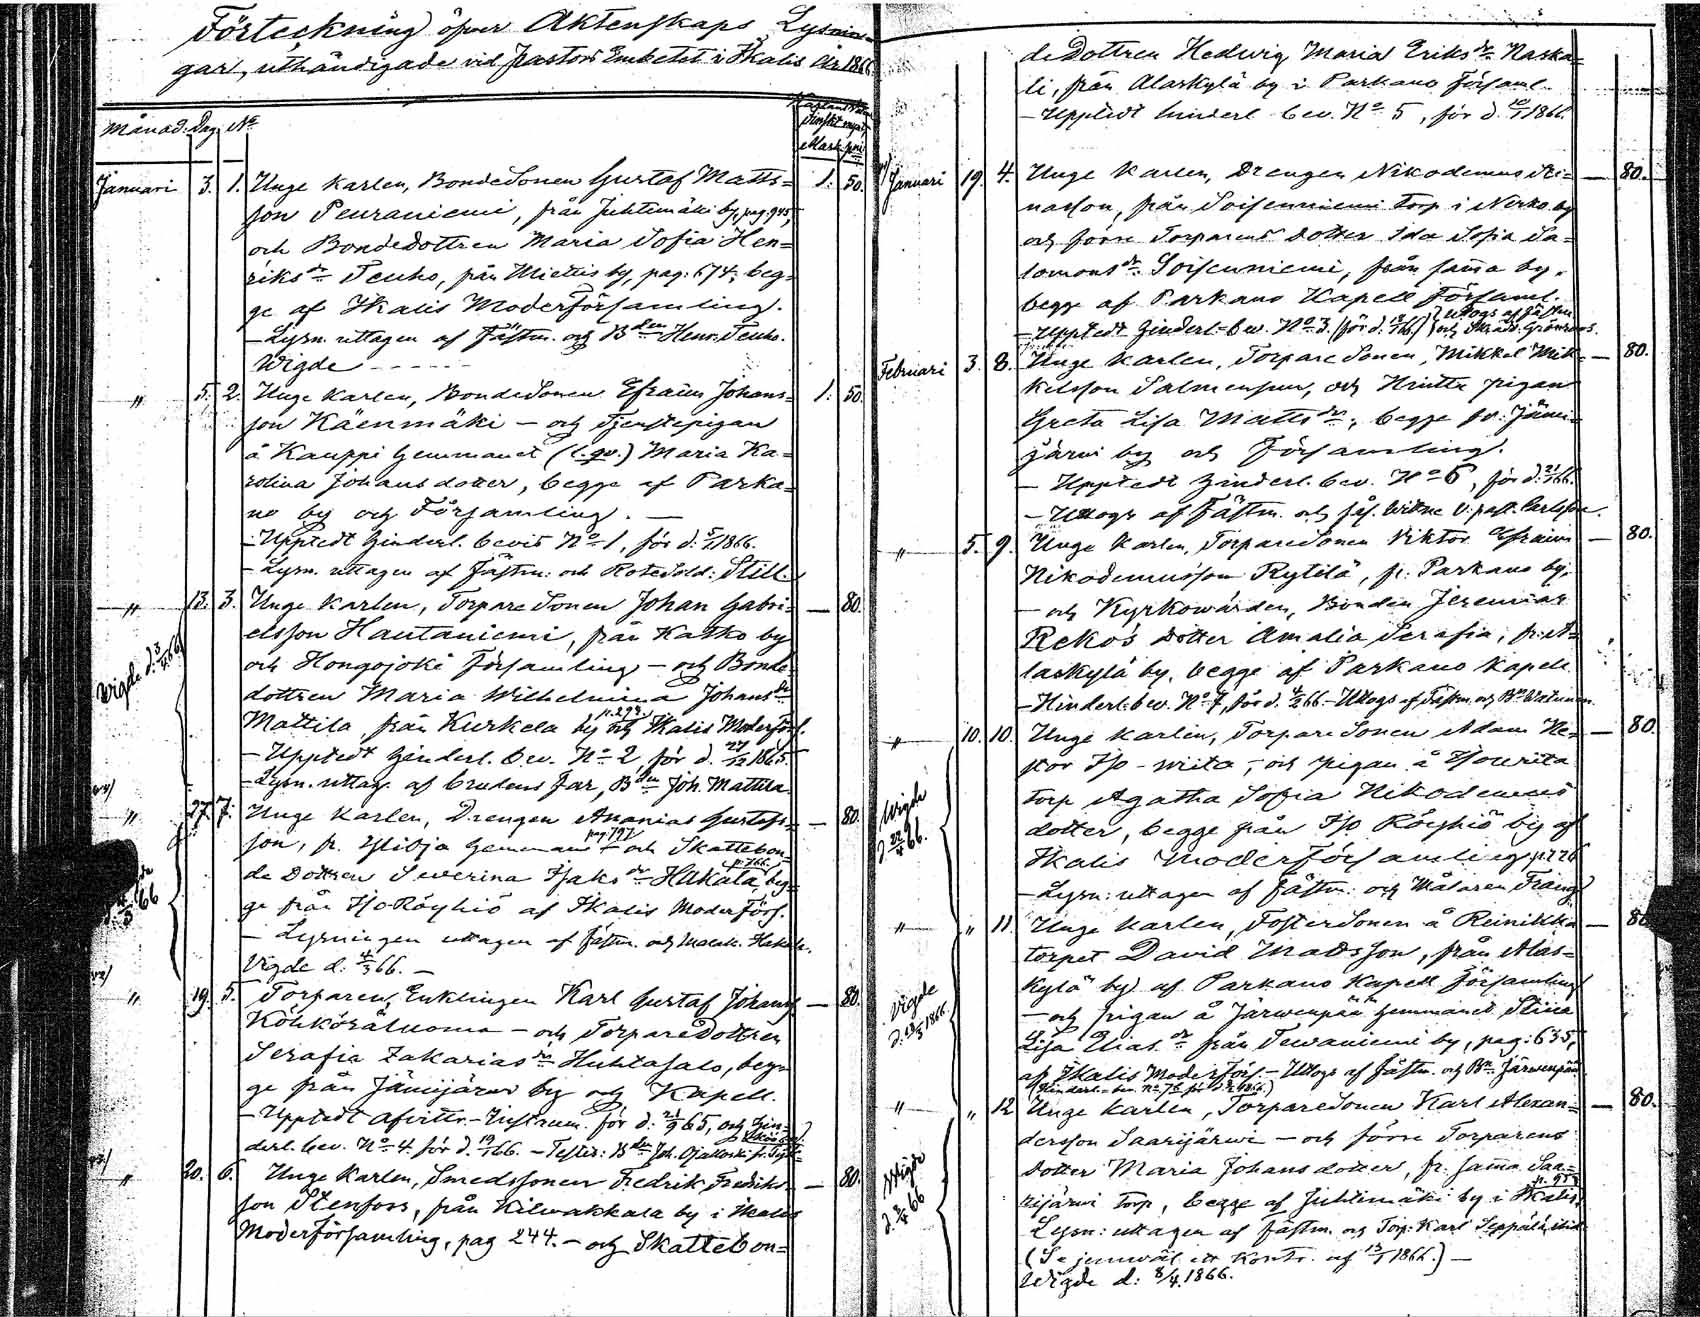 Förteckning öfver Äktenskaps Lysnin-
gar, uthändigade vid Pastors Embetet i Ikalis År 1866
Månad. Dag. No
Finskt mynt
Mark. pni
Januari 3. 1. Unge Karlen, BondeSonen Gustaf Matts- 1. 50.
son Peuraniemi, från Juhtimäki by, pag. 945,
och Bondedottren Maria Sofia Hen-
riks dr Teuho, från Miettis by, pag: 674, beg-
ge af Ikalis Moderförsamling.
- Lysn. uttagen af Fästm. och Bden Henr. Teuho.
Wigde
" 5. 2. Unge Karlen, BondeSonen Efraim Johans- 1. 50.
son Käenmäki - och Tjenstepigan
å Kauppi hemmanet (l. gv.) Maria Ka-
rolina Johansdotter, begge af Parka-
no by och Församling. -
- Upptedt hinderl. bevis No 1, för d. 5/1 1866.
- Lysn. uttagen af Fästm: och RoteSold: Still.
" 13. 3. Unge Karlen, TorpareSonen Johan Gabri- - 80.
elsson Hautaniemi, från Katko by
och Hongojoki församling - och Bonde
dottren Maria Wilhelmina Johans dr
p. 292.
Mattila, från Kurkela by och Ikalis Moderförs.
- Upptedt hinderl. bev. No 2, för d. 27/12 1865.
- Lysn. uttag. af brudens far, Bden Joh. Mattila
Vigde d. 3/4 66
" 27. 7. Unge Karlen, Drengen Ananias Gustafs- - 80.
pag. 797
son, fr. Ylioja hemman - och Skattebon-
p. 766.
de Dottren Severina Isaks dr Hakala, beg-
ge från Iso-Röyhiö af Ikalis Moderförs.
- Lysningen uttagen af fästm. och Hakala.
Vigde d. 4/3 66. -
" 19. 5. Torparen, Enklingen Karl Gustaf Johans - 80.
Köhköräluoma - och TorpareDottren
Serafia Zakarias dr Huhtasalo, beg-
ge från Jämijärvi by och Kapell.
- Upptedt Afvittr.-Instrum. för d. 21/9 65, och hin-
derl. bev. No 4 för d. 19/1 66. - Testes: Bden Joh. Ojakoski fr.
" 20. 6. Unge Karlen, Smedssonen Fredrik Fredriks- - 80.
son Stenfors, från Kilwakkala by i Ikalis
Moderförsamling, pag 244. - och Skattebon-
de Dottren Hedwig Maria Eriks dr Naska-
li, från Alaskylä by i Parkano Församl.
- Upptedt hinderl. bev. No 5, för d. 10/1 1866.
Januari 19. 4. Unge Karlen, Drengen Nikodemus
nasson, från Soisenniemi torp i Nerko by
och förre Torparens Dotter Ida Sofia Sa-
lomons dr Soisenniemi, från samma by,
begge af Parkano Kapell Församl.
- Upptedt hinderl. bev. No 3. (för d. 12/1 66) uttogs af Fästm. och
Februari 3. 8. Unge Karlen, TorpareSonen, Mikkel Mik- - 80.
kelsson Salmensuu, och Hintta pigan
Greta Lisa Matts dr, begge fr. Jämi-
järvi by och Församling.
- Upptedt hinderl. bev. No 6, för d. 21/1 66.
- Uttogs af Fästm. och Wittne V. past. Carlsson.
" 5. 9. Unge Karlen, TorpareSonen Viktor Efraim - 80.
Nikodemusson Rytilä, fr. Parkano by,
- och Kyrkowärden, Bonden Jeremias
Rekos Dotter Amalia Serafia, fr. A-
laskylä by, begge af Parkano Kapell
- Hinderl. bev. No 7, för d. 4/2 66. - Uttogs af Fästm. och
" 10. 10. Unge Karlen, TorpareSonen Adam Ne- - 80.
stor Iso-wiita, - och pigan å Isowiita
torp Agatha Sofia Nikodemus
dotter, begge från Iso Röyhiö by af
Ikalis Moderförsamling p. 776
- Lysn: uttagen af fästm: och Målaren Frang
Wigde d. 22/4 66.
" " 11. Unge Karlen, FosterSonen å Reinikka - 80
torpet David Madsson, från Alas-
kylä by af Parkano Kapell församling
- och pigan å Järwenpää hemmanet Stina
Lisa Elias dr från Tewaniemi by, pag: 635,
af Ikalis Moderförs. - Uttogs af Fästm. och Bn Järwenpää
Vigde d. 13/5 1866.
" " 12 Unge Karlen, TorpareSonen Karl Alexan- - 80.
dersson Saarijärwi - och förre Torparens
Dotter Maria Johansdotter, fr. samma Saa-
p. 958
rijärwi torp, begge af Juhtimäki by i Ikalis.
Lysn: uttagen af Fästm. och Torp: Karl Seppälä
(Se jemwäl ett Kontr. af 13/1 1866.) -
Wigde d: 8/4 1866.
Wigde d. 8/4 66